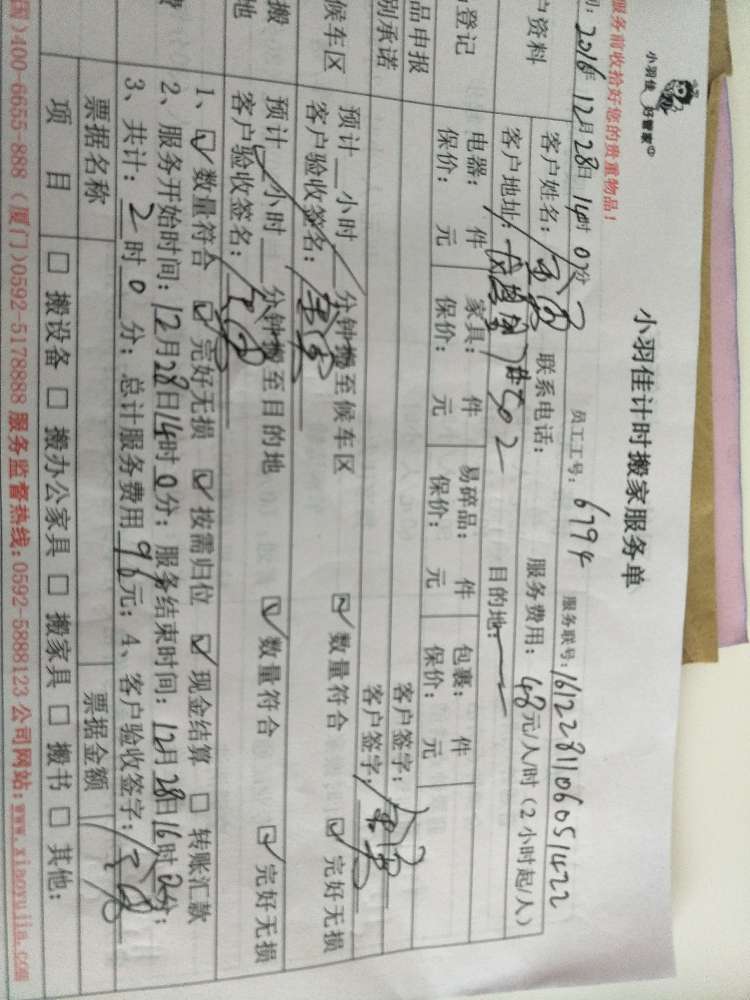 小羽佳 好管家
小羽佳计时搬家服务单
服务前收拾好您的贵重物品!
2016年12月28日14时0分 员工工号: 6794 服务联号: 1612281106051422
户资料 客户姓名: 联系电话: 服务费用: 48元/人/时(2小时起/人)
客户地址: 7#502 目的地:
登记 电器: 件 家具: 件 易碎品: 件 包裹: 件
保价: 元 保价: 元 保价: 元 保价: 元
品申报 客户签字:
别承诺 客户签字:
候车区 预计 小时 分钟搬至候车区 数量符合 完好无损
客户验收签名:
搬 预计 小时 分钟搬至目的地 数量符合 完好无损
地 客户验收签名:
1、 数量符合 完好无损 按需归位 现金结算 转账汇款
费 2、服务开始时间: 12月28日14时0分; 服务结束时间: 12月28日16时0分;
3、共计: 2时0分; 总计服务费用96元; 4、客户验收签字:
票据名称 票据金额
项 目 搬设备 搬办公家具 搬家具 搬书 其他:
国)400-6655-888 (厦门)0592-5178888 服务监督热线:0592-5888123 公司网站:www.xiaoyujia.com